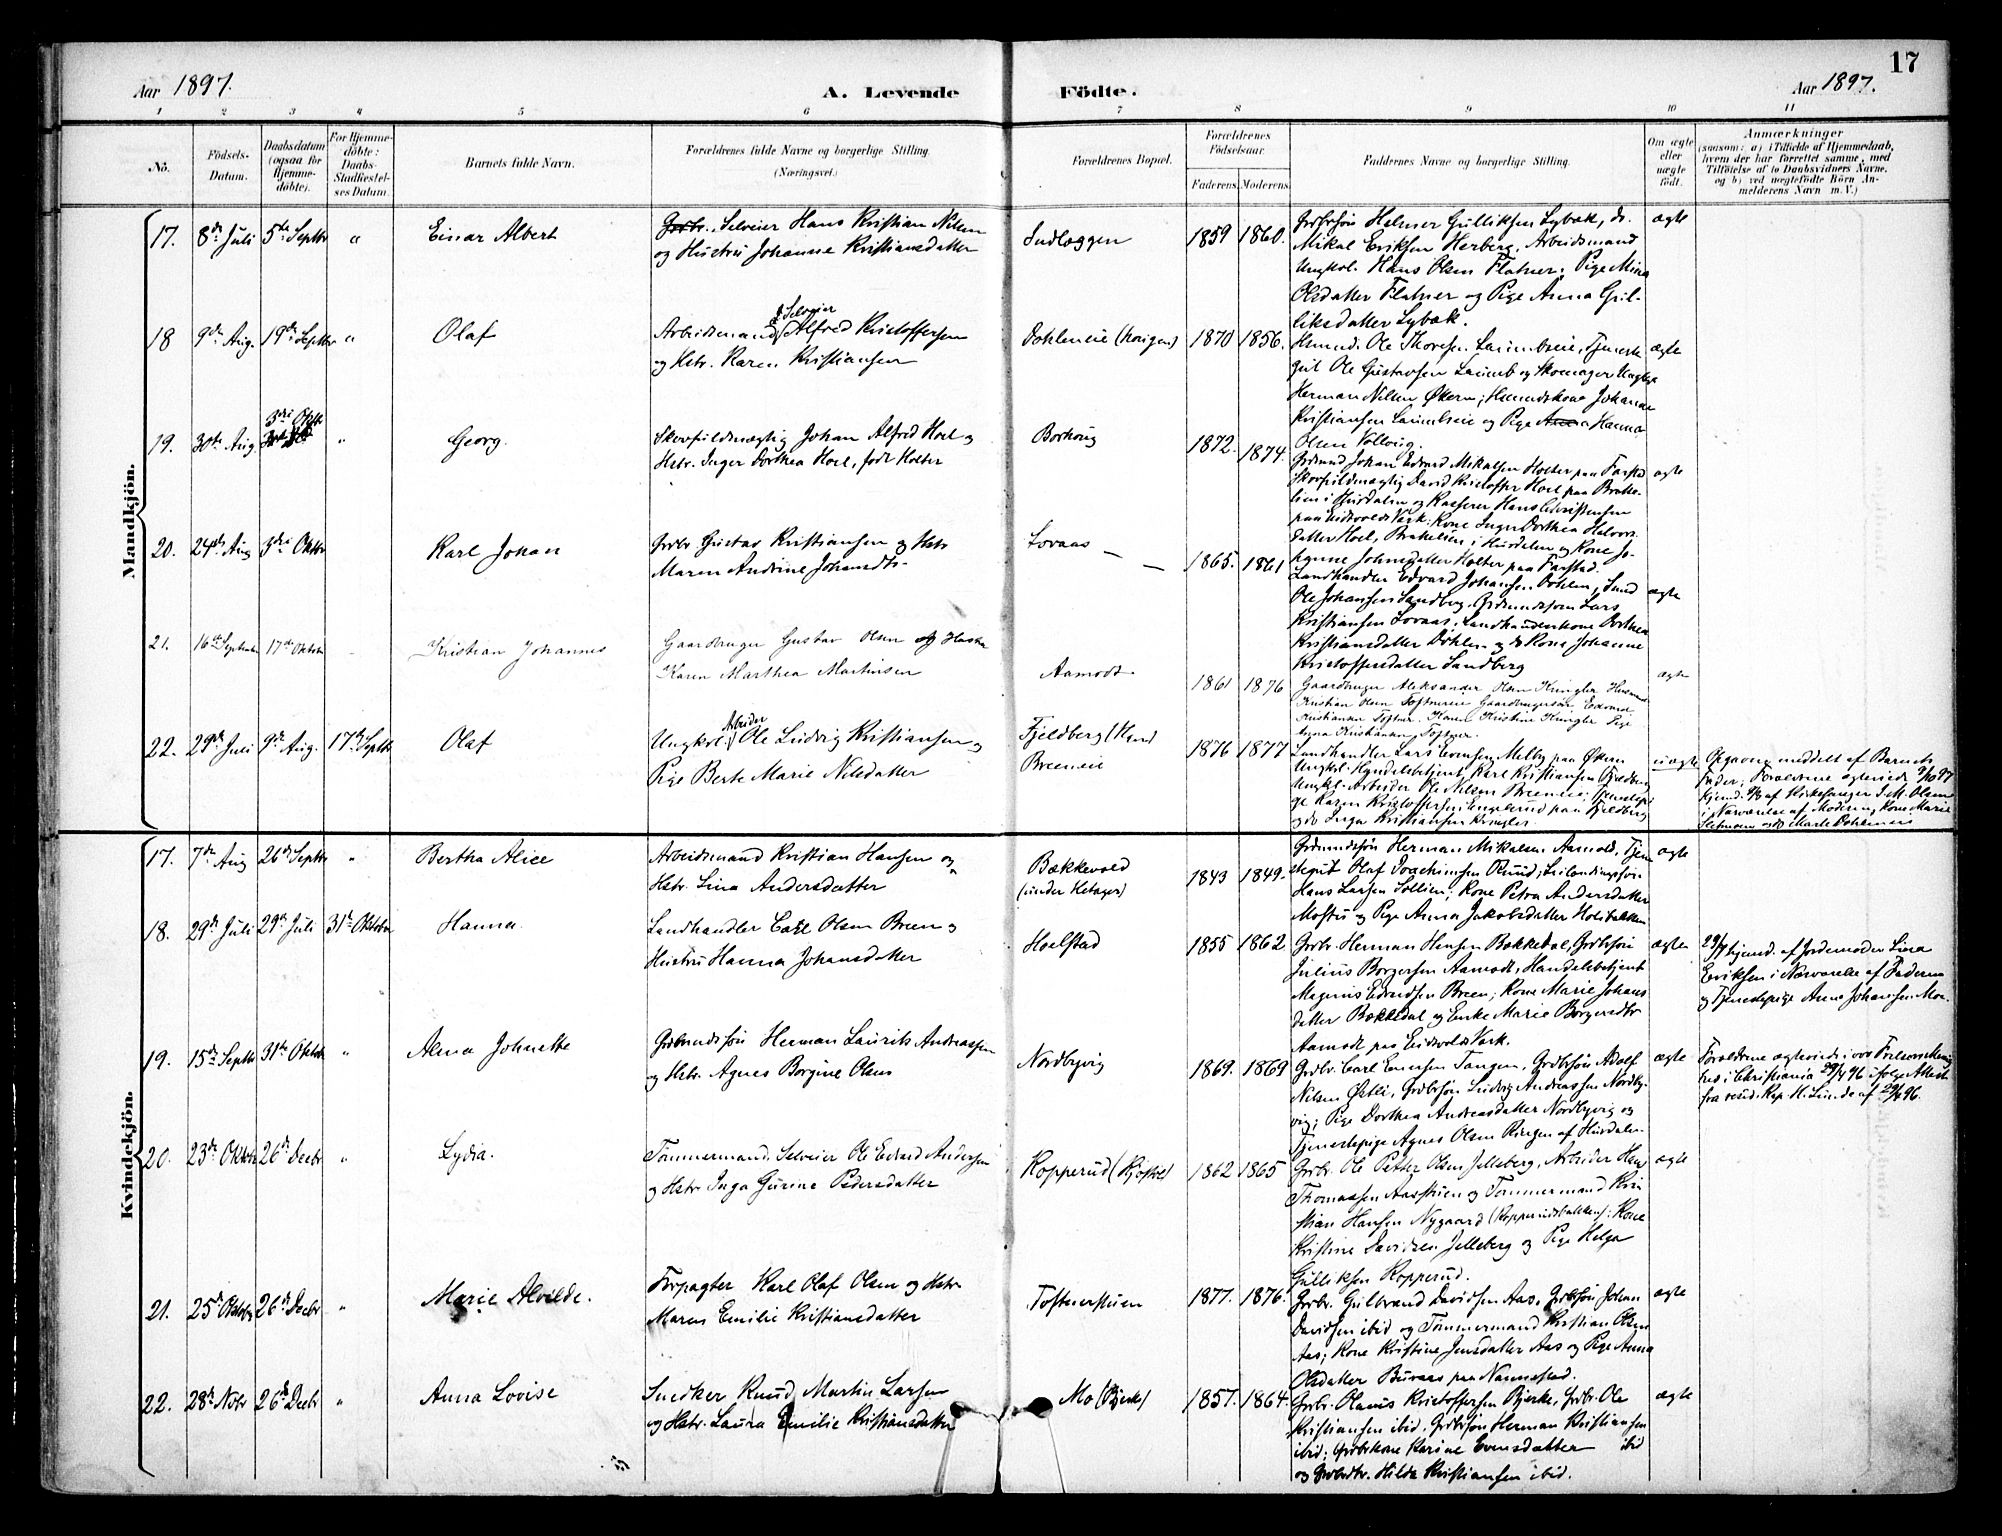 17
Aar 1897.
A. Levende Födte.
Aar 1897.
1 2 3 4 5 6 7 8 9 10 11
No.
Födsels-Datum.
Daabsdatum (ogsaa for Hjemme-döbte).
For Hjemme-döbte: Daabs-Stadfæstel-ses Datum.
Barnets fulde Navn.
Forældrenes fulde Navne og borgerlige Stilling. (Næringsvei.)
Forældrenes Bopæl.
Forældrenes Födselsaar.
Faderens. Moderens.
Faddernes Navne og borgerlige Stilling.
Om ægte eller uægte født.
Anmærkninger
(saasom: a) i Tilfælde af Hjemmedaab, hvem der har forrettet samme, med Tilföielse af to Daabsvidners Navne, og b) ved uægtefödte Börn Anmelderens Navn m. V.)
Mandkjön.
17. 8de Juli 5te Septbr " Einar Albert
Grdbr. Selveier Hans Kristian Nilsen
og Hustru Johanne Kristiansdatter
1859 1860.
Grdbrsøn Helmer Gulliksen Lybæk, do.
Mikal Eriksen Herberg, Arbeidsmand
Ungkal. Hans Olsen Flatner; Pige Mina
Olsdatter Flatner og Pige Anna Gul-
liksdatter Lybæk.
ægte
18 9de Aug. 19de Septbr " Olaf
Arbeidsmand & Selveier Alfred Kristoffersen
og Hstr. Karen Kristiansen
1870 1856.
Husmd. Ole Thoresen Laumbseie, Tjeneste-
gut Ole Gustavsen Laumb og Skomager Ungkar
Herman Nilsen Økern; Husmandskone Johanne
Kristiansen Laumbseie og Pige Hanna
Olsen Vollaug.
ægte
19. 30te Aug. 3die Oktbr " Georg.
Skovfuldmægtig Johan Alfred Hoel og
Hstr. Inger Dorthea Hoel, født Holter
1872. 1874.
Grdmand Johan Edvard Mikalsen Holter paa Farstad
Skovfuldmægtig David Kristoffer Hoel paa Brække-
lien i Hurdalen og Kasserer Hans Christensen
paa Eidsvolds Værk; Kone Inger Dorthea Halvors-
datter Hoel, Brækelien i Hurdalen og Kone Jo-
hanne Johnsdatter Holter paa Farstad.
ægte
20. 24de Aug 3die Oktbr Karl Johan
Grdbr. Gustav Kristiansen og Hstr
Maren Andrine Johansdtr.
Lovaas
1865. 1861
Landhandler Edvard Johansen Dohlen, Smed
Ole Johansen Sandberg, Grdmandssøn Lars
Kristiansen Lovaas, Landhandlerkone Dorthea
Kristiansdatter Dohlen og do Kone Johanne
Kristoffersdatter Sandberg
ægte
21. 16de September 17de Oktober Kristian Johannes
Gaardbruger Gustav Olsen og Hustru
Karen Marthea Martinsen
Aamodt
1861 1876
Gaardbruger Aleksander Olsen Kringler Husmand
Kristian Olsen Toftnereie Gaardbrugersøn Edvard
Kristiansen Toftner. Karen Kristine Kringler Pige
Kristiansen Toftner.
ægte
22. 29de Juli 9de Aug. 17de Septbr Olaf
Ungkrl. Arbeider Ole Ludvig Kristiansen og
Pige Berte Marie Nilsdatter
Fjeldberg
Breeneie
1876 1877
Landhandler Lars Evensen Melby paa Økern
Ungkrl. Handelsbetjent Karl Kristiansen Fjeldberg
Ungkl. Arbeider Ole Nilsen Breeneie; Tjenestepi-
ge Karen Kristoffersen Engelsrud paa Fjeldberg
og do Inga Kristiansen Kringler.
uægte
Opgaven meddelt af Barnets
Fader; Forældrene ægteviede
Hjemd. 9/8 af Kirkesanger J. M. Olsen
i Nærværelse af Moderen, Kone Marie
Kvindekjön.
17. 7de Aug 26de Septbr " Bertha Alice
Arbeidsmand Kristian Hansen og
Hstr. Lina Andersdatter
Bækkevold
(under Hetager)
1843 1849.
Grdmandssøn Herman Mikalsen Aamodt, Tjene-
stegut Olaf Joachimsen Ruud, Leilendingssøn
Hans Larsen Sollien; Kone Petra Andersdatter
Mostu og Pige Anna Jakobsdatter Holtbakken
ægte
18. 29de Juli 29de Juli 31te Oktober Hanna.
Landhandler Carl Olsen Breen og
Hustru Hanna Johansdatter
Hoelstad
1855 1862
Grdbr. Herman Hansen Bækkedal, Grdbrsøn
Julius Borgersen Aamodt, Handelsbetjent
Magnus Edvardsen Breen; Kone Marie Johans-
datter Bækkedal og Enke Marie Borgersdtr
Aamodt paa Eidsvolds Værk.
ægte
29/7 hjemd. af Jordemoder Lina
Eriksen i Nærværelse af Faderen
og Tjenestepige Anne Johansen Moe.
19. 15de Septbr 31te Oktober " Alma Johnette
Grdmandssøn Herman Laurits Andreassen
og Hstr. Agnes Borgine Olsen
Nordbyvig
1869. 1869
Grdbr. Carl Evensen Tangen, Grdbrsøn Adolf
Nilsen Østli, Grdbrsøn Ludvig Andreassen Nordby-
vig; Pige Dorthea Andreasdatter Nordbyvig og
Tjenestepige Agnes Olsen Ringen af Hurdalen.
ægte
Forældrene ægteviede i vor Frelsers Menig-
hed i Christiania 29/4 96 ifølge Attest
fra resid. Kap. H. Lunde af 29/4 96.
20. 23de Oktbr 26de Decbr " Lydia.
Tømmermand. Selveier Ole Edvard Andersen
og Hstr Inga Gurine Pedersdatter
Kopperud
1862 1865
Grdbr. Ole Petter Olsen Jelleberg, Arbeider Hans
Thomassen Aasstuen og Tømmermand Kris-
tian Hansen Nygaard (Kopperudsbakken): Kone
Kristine Davidsen Jelleberg og Pige Helga
Gulliksen Kopperud.
ægte
21. 25de Oktbr 26de Decbr " Marie Alvilde.
Forpagter Karl Olaf Olsen og Hstr
Maren Emilie Kristiansdatter
Toftnerstuen
1877. 1876.
Grdbr. Gulbrand Davidsen Aas, Grdbrsøn Johan
Davidsen ibid og Tømmermand Kristian Olsen
Aas; Kone Kristine Jensdatter Aas og Pige Anna
Olsdatter Buraas paa Nannestad.
ægte
22. 28de Nvbr 26de Decbr " Anna Lovise
Snedker Knud Martin Larsen
og Hstr. Laura Emilie Kristiansdatter
Mo (Bjerke)
1857. 1864.
Grdbr. Olaves Kristoffersen Bjerke, Grdbr. Ole
Kristiansen ibid, Grdbrsøn Herman Kristiansen
ibid; Grdbrkone Karine Evensdatter ibid
og Grdbrdtr. Hilda Kristiansen ibid.
ægte